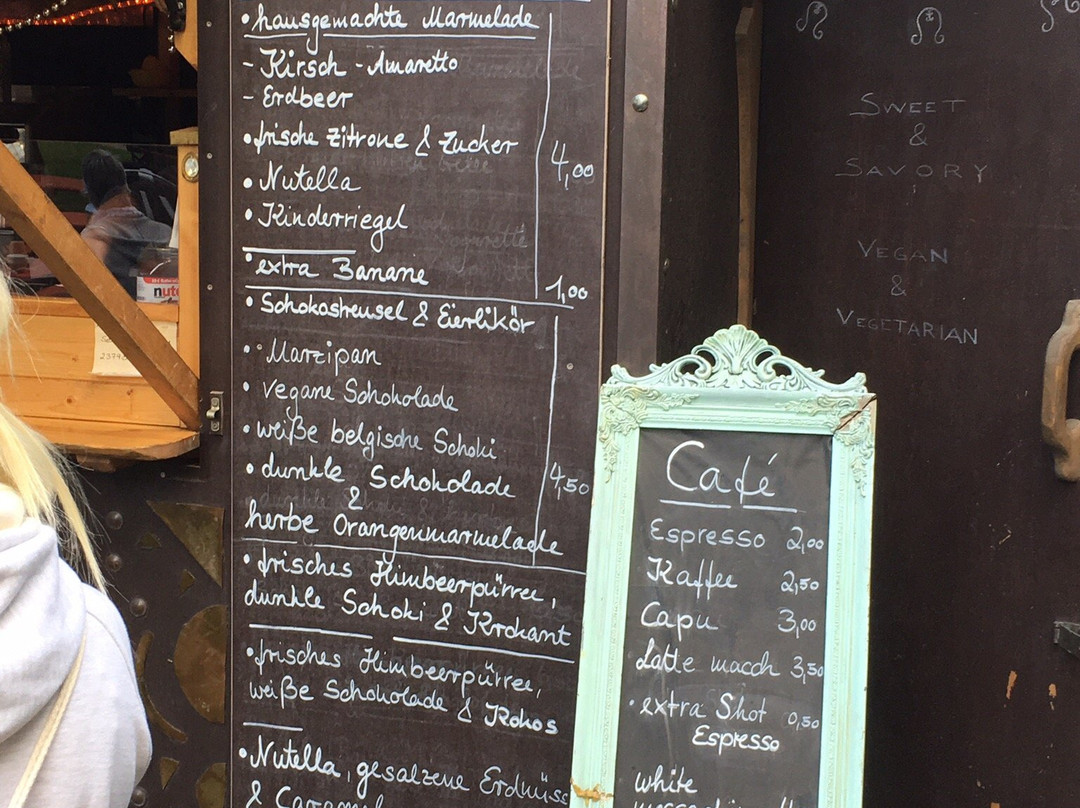 • hausgemachte Marmelade
- Kirsch - Amaretto
- Erdbeer
• frische Zitrone & Zucker
4,00
• Nutella
• Kinderriegel
• extra Banane
1,00
• Schokostreusel & Eierlikör
• Marzipan
• vegane Schokolade
• weiße belgische Schoki
• dunkle Schokolade
4,50
&
herbe Orangenmarmelade
• frisches Himbeerpürree,
dunkle Schoki & Krokant
• frisches Himbeerpürree,
weiße Schokolade & Kokos
• Nutella, gesalzene Erdnüss
& Caramel
nute
Café
Espresso 2,00
Kaffee 2,50
Capu 3,00
• Latte macch 3,50
• extra Shot 0,50
Espresso
white
SWEET
&
SAVORY
VEGAN
&
VEGETARIAN